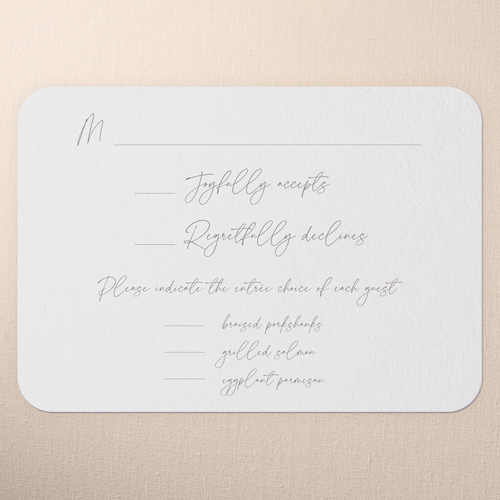 M
Joyfully accepts
Regretfully declines
Please indicate the entrée choice of each guest
braised porkshanks
grilled salmon
eggplant parmesan